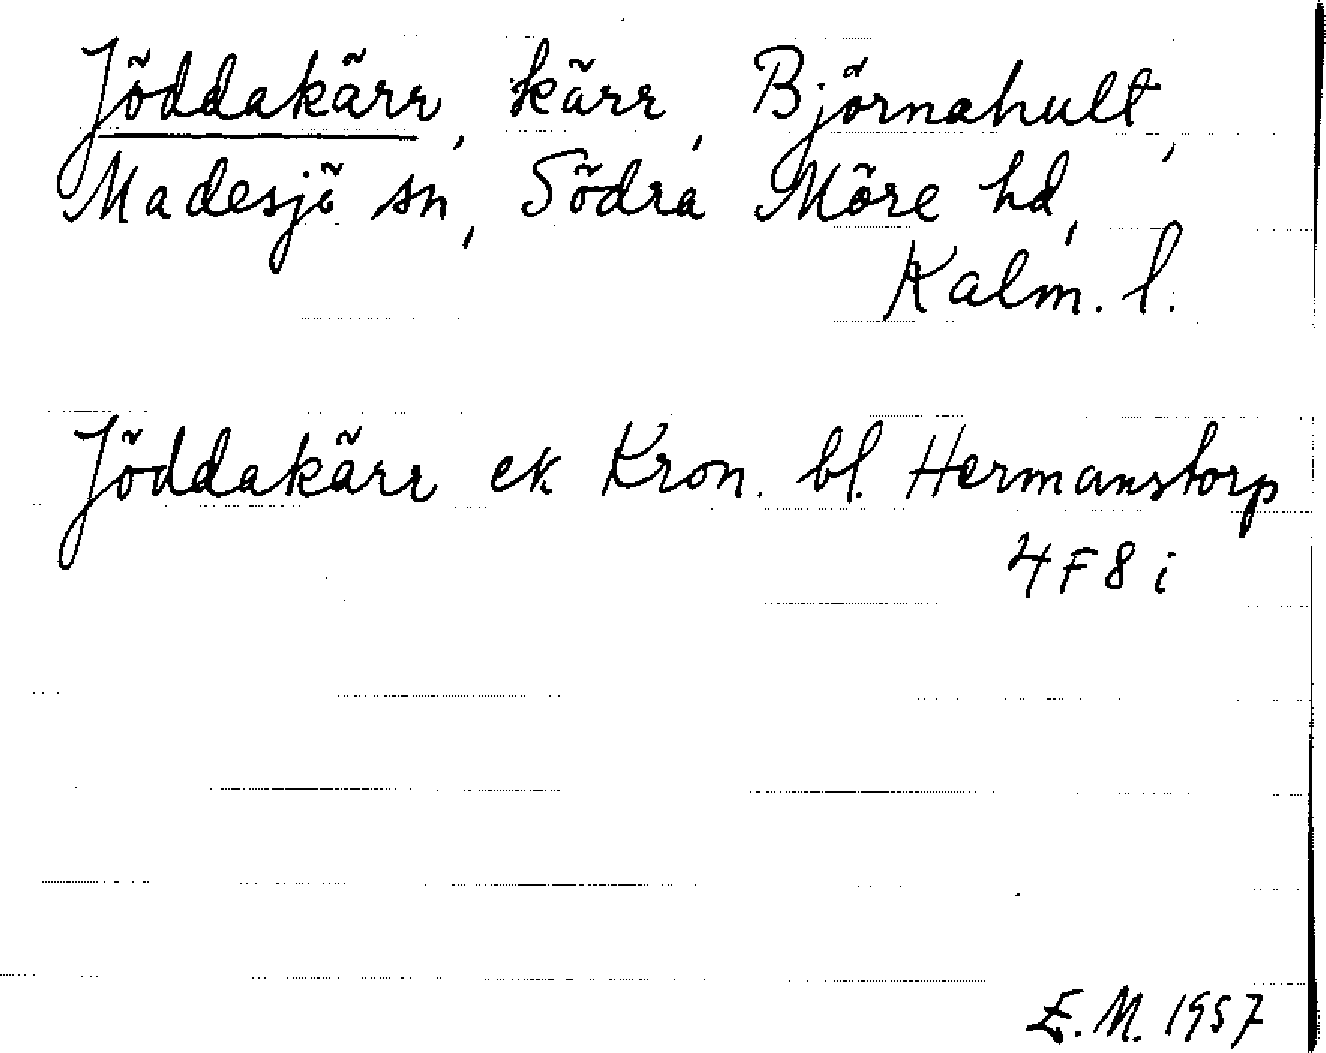 Jöddakärr, kärr, Björnahult,
Madesjö sn, Södra Möre hd,
Kalm. l.
Jöddakärr ek. Kron. bl. Hermanstorp
4F8i
E.M. 1957